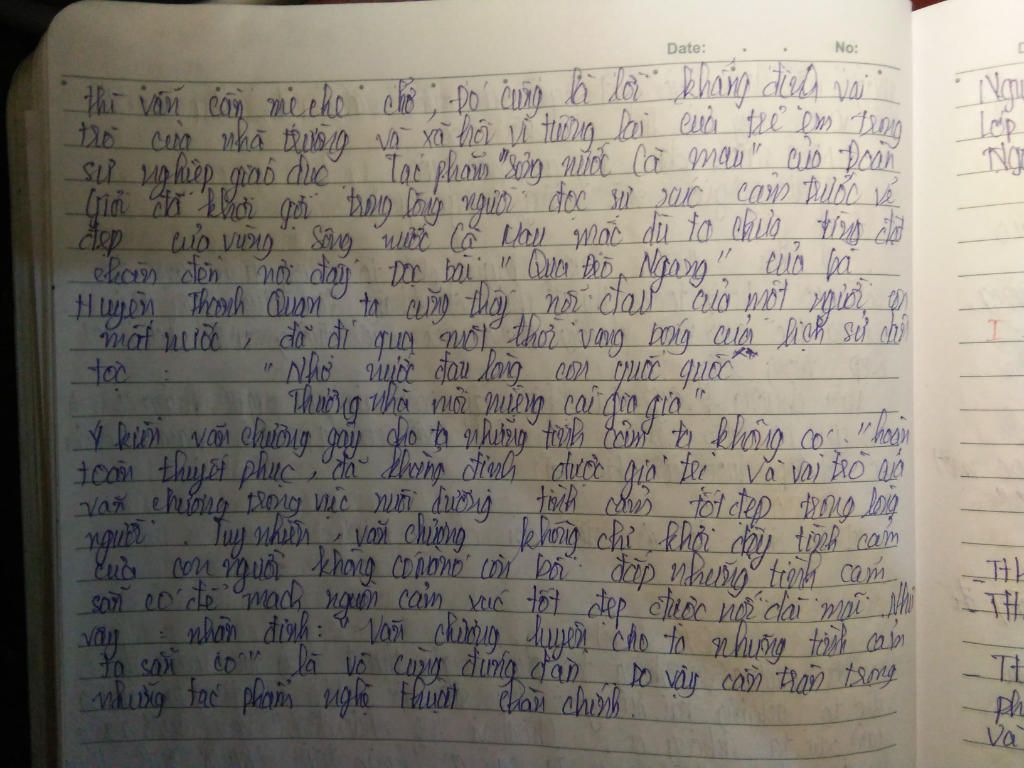 Date: . . No:
thì vẫn cần mẹ che chở, Đó cũng là lời khẳng định vai
trò của nhà trường và xã hội vì tương lai của trẻ em trong
sự nghiệp giáo dục Tác phẩm "Sông nước Cà mau" của Đoàn
Giỏi đã khơi gợi trong lòng người đọc sự xúc cảm trước vẻ
đẹp của vùng sông nước Cà Mau mặc dù ta chưa từng đặt
chân đến nơi đây. Đọc bài "Qua Đèo Ngang" của bà
Huyện Thanh Quan ta cũng thấy nỗi đau của một người con
mất nước, đã đi qua một thời vang bóng của lịch sử dân
tộc : "Nhớ nước đau lòng con quốc quốc
Thương nhà mỏi miệng cái gia gia"
Ý kiến văn chương gây cho ta những tình cảm ta không có "hoàn
toàn thuyết phục, đã khẳng định được giá trị và vai trò của
văn chương trong việc nuôi dưỡng tình cảm tốt đẹp trong lòng
người. Tuy nhiên, văn chương không chỉ khơi dậy tình cảm
của con người không có nó còn bồi đắp những tình cảm
sẵn có để mạch nguồn cảm xúc tốt đẹp được nối dài mãi Như
vậy : nhận định: "Văn chương luyện cho ta những tình cảm
ta sẵn có" là vô cùng đúng đắn. Do vậy cần trân trọng
những tác phẩm nghệ thuật chân chính.
Lớp
I
Và